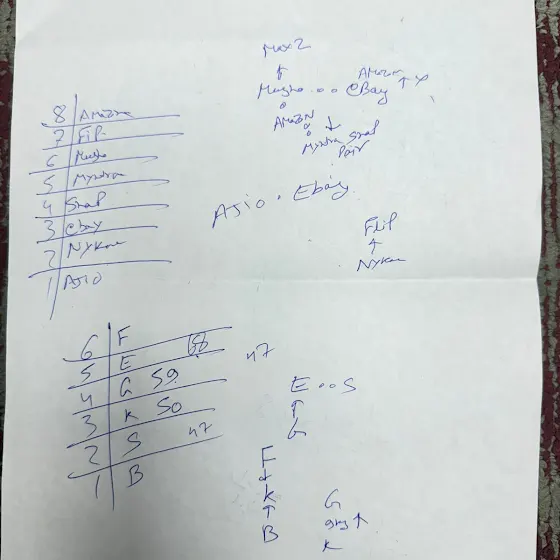 8 Amazon
7 Flip
6
5 Myntra
4 Snap
3 ebay
2 Nykaa
1 Ajio
↑
Amazon
eBay ↑
Amazon
↓
Myntra Snap
Pair
Ajio · Ebay
Flip
↑
Nykaa
6 F
5 E
4 G 59
3 K 50
2 S 47
1 B
47
E oo S
↑
G
F
K
↑
B
G
↑
K